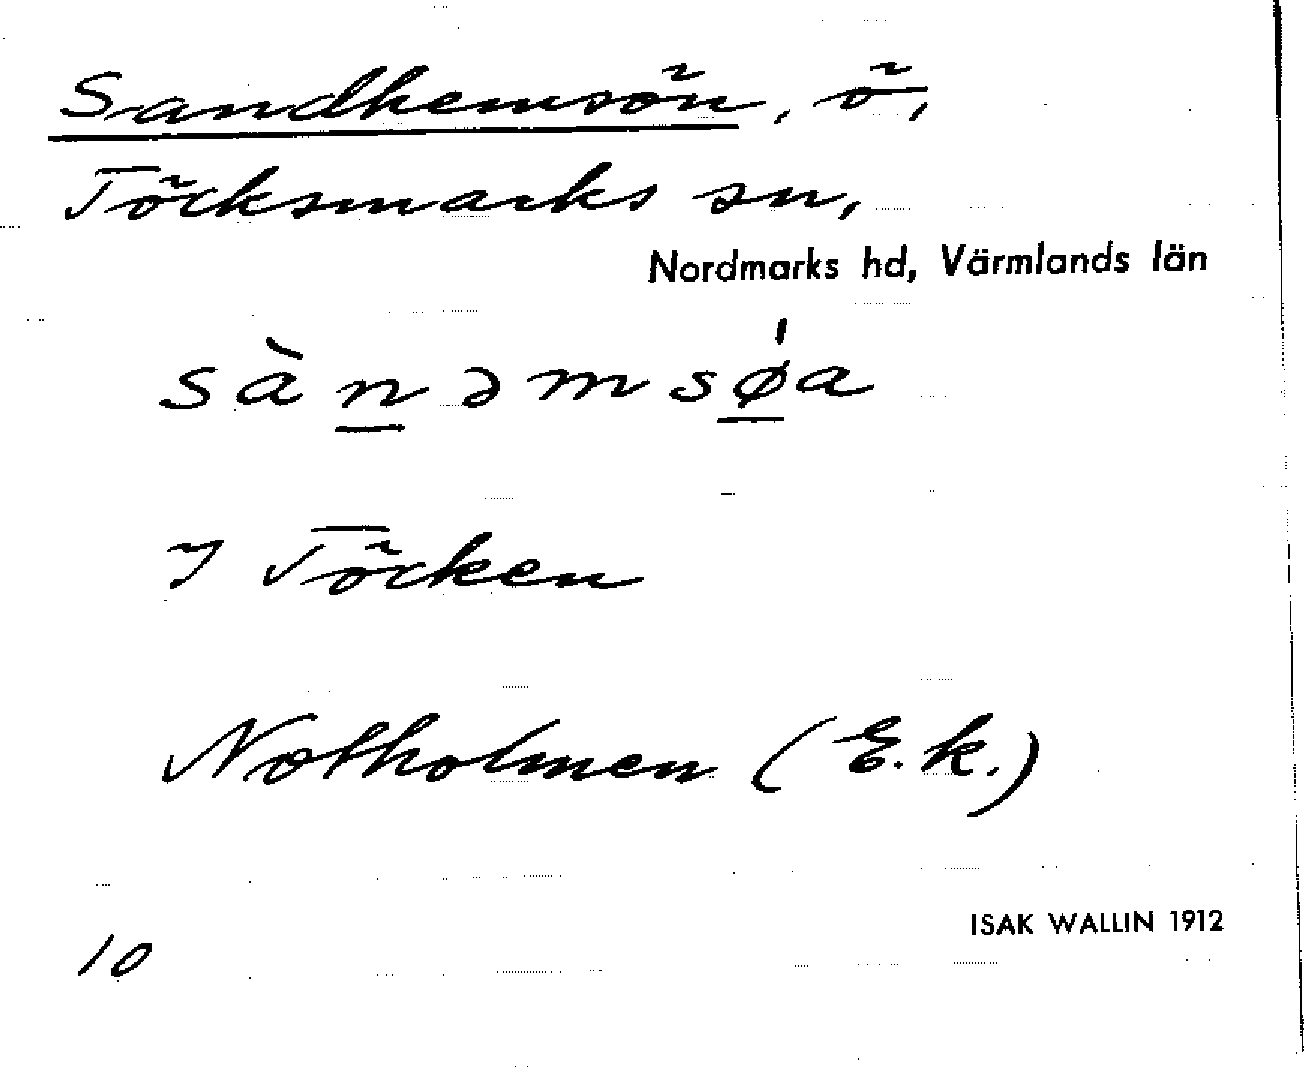 Sandhemsön, ö,
Töcksmarks sn,
Nordmarks hd, Värmlands län
sànəmsø̍a
I Töcken
Notholmen (E.k.)
ISAK WALLIN 1912
10